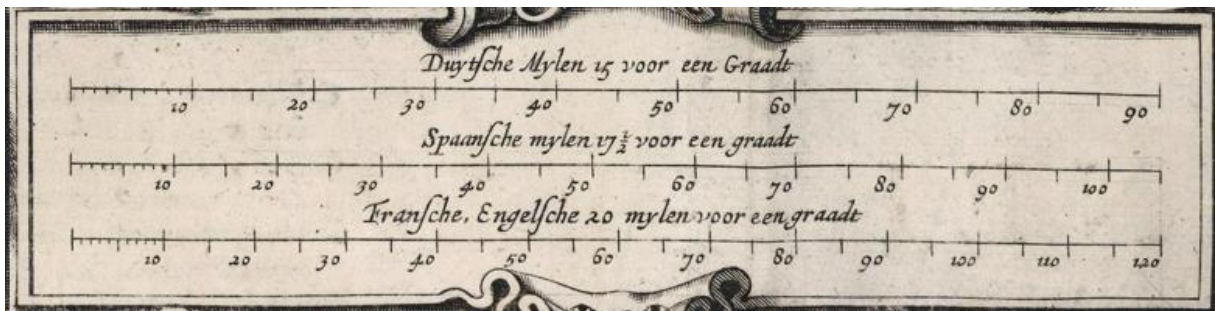 Duytſche Mylen 15 voor een Graadt
10 20 30 40 50 60 70 80 90
Spaanſche mylen 17 1/2 voor een graadt
10 20 30 40 50 60 70 80 90 100
Franſche, Engelſche 20 mylen voor een graadt
10 20 30 40 50 60 70 80 90 100 110 120